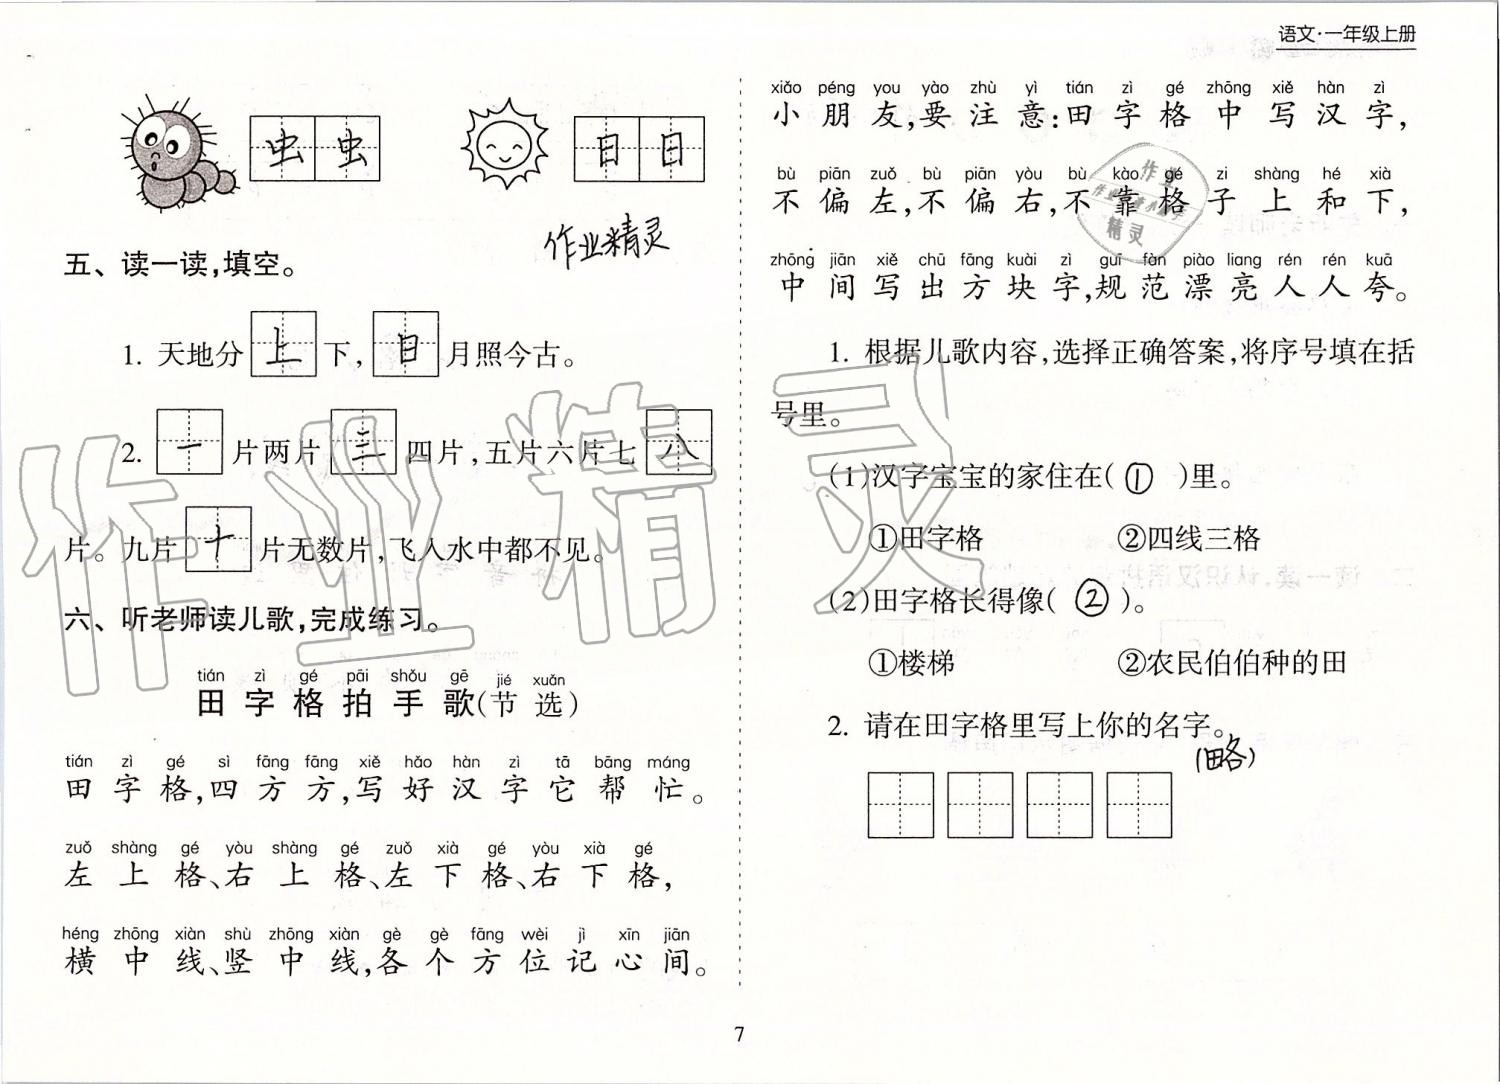 语文·一年级上册
虫 虫 日 日
作业精灵
五、读一读,填空。
1. 天地分 上 下, 日 月照今古。
2. 一 片两片 三 四片,五片六片七 八
片。九片 十 片无数片,飞入水中都不见。
六、听老师读儿歌,完成练习。
tián zì gé pāi shǒu gē jié xuǎn
田字格拍手歌(节选)
tián zì gé sì fāng fāng xiě hǎo hàn zì tā bāng máng
田字格,四方方,写好汉字它帮忙。
zuǒ shàng gé yòu shàng gé zuǒ xià gé yòu xià gé
左上格、右上格、左下格、右下格,
héng zhōng xiàn shù zhōng xiàn gè gè fāng wèi jì xīn jiān
横中线、竖中线,各个方位记心间。
xiǎo péng you yào zhù yì tián zì gé zhōng xiě hàn zì
小朋友,要注意:田字格中写汉字,
bù piān zuǒ bù piān yòu bù kào gé zi shàng hé xià
不偏左,不偏右,不靠格子上和下,
zhōng jiān xiě chū fāng kuài zì guī fàn piào liang rén rén kuā
中间写出方块字,规范漂亮人人夸。
1. 根据儿歌内容,选择正确答案,将序号填在括
号里。
(1)汉字宝宝的家住在( ① )里。
①田字格 ②四线三格
(2)田字格长得像( ② )。
①楼梯 ②农民伯伯种的田
2. 请在田字格里写上你的名字。
(略)
7
作业精灵